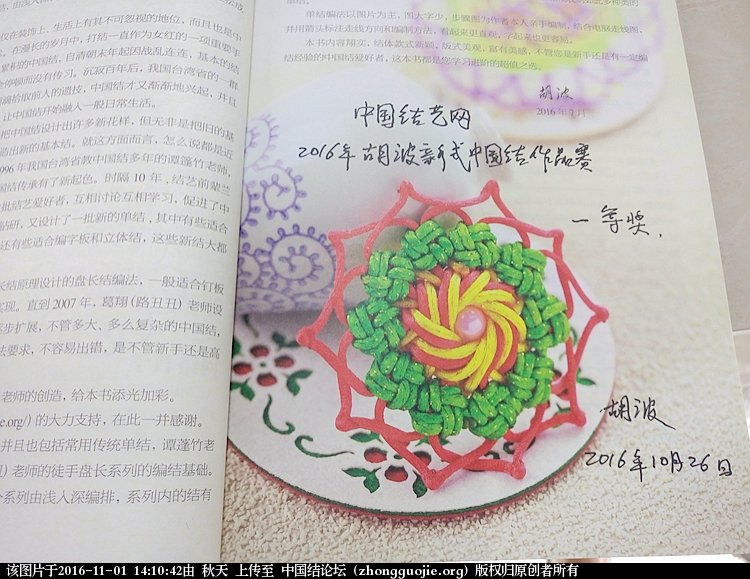 仅在装饰上、生活上有其不可忽视的地位，而且也是中
。在漫长的岁月中，打结一直作为女红的一项重要手
累积的中国结，自清朝末年起因战乱连连，基本的结
全停顿而没有传习。沉寂百年后，我国台湾省的一群
滴拾取前人的遗技，中国结才又渐渐地兴起，并且
让中国结开始融入一般日常生活。
把中国结设计出许多新花样，但无非是把旧的基
造出新的基本结。就这方面而言，怎么说都是近
996年我国台湾省教中国结多年的谭蓬竹老师，
国结传承有了新起色。时隔10年，结艺前辈兰
批结艺爱好者，互相讨论互相学习，促进了中
钻研，又设计了一批新的单结，其中有些适合
还有些适合编字板和立体结，这些新结大都
长结原理设计的盘长结编法，一般适合钉板
实现。直到2007年，葛翔（路丑丑）老师设
步扩展，不管多大、多么复杂的中国结，
法要求，不容易出错，是不管新手还是高
老师的创造，给本书添光加彩。
e.org/）的大力支持，在此一并感谢。
并且也包括常用传统单结，谭蓬竹老
）老师的徒手盘长系列的编结基础。
系列由浅入深编排，系列内的结有
单结编法以图片为主，图大字少，步骤图为作者本人亲手编制，结合电脑走线图，
并用箭头标注走线方向和编制方法，看起来更直观，学起来也更容易。
本书内容翔实，结体款式新颖，版式美观，富有美感，不管您是新手还是有一定编
结经验的中国结爱好者，这本书都是您学习进阶的超值之选。
胡波
2016年9月
中国结艺网
2016年胡波新式中国结作品赛
一等奖，
胡波
2016年10月26日
该图片于2016-11-01 14:10:42由 秋天 上传至 中国结论坛（zhongguojie.org）版权归原创者所有